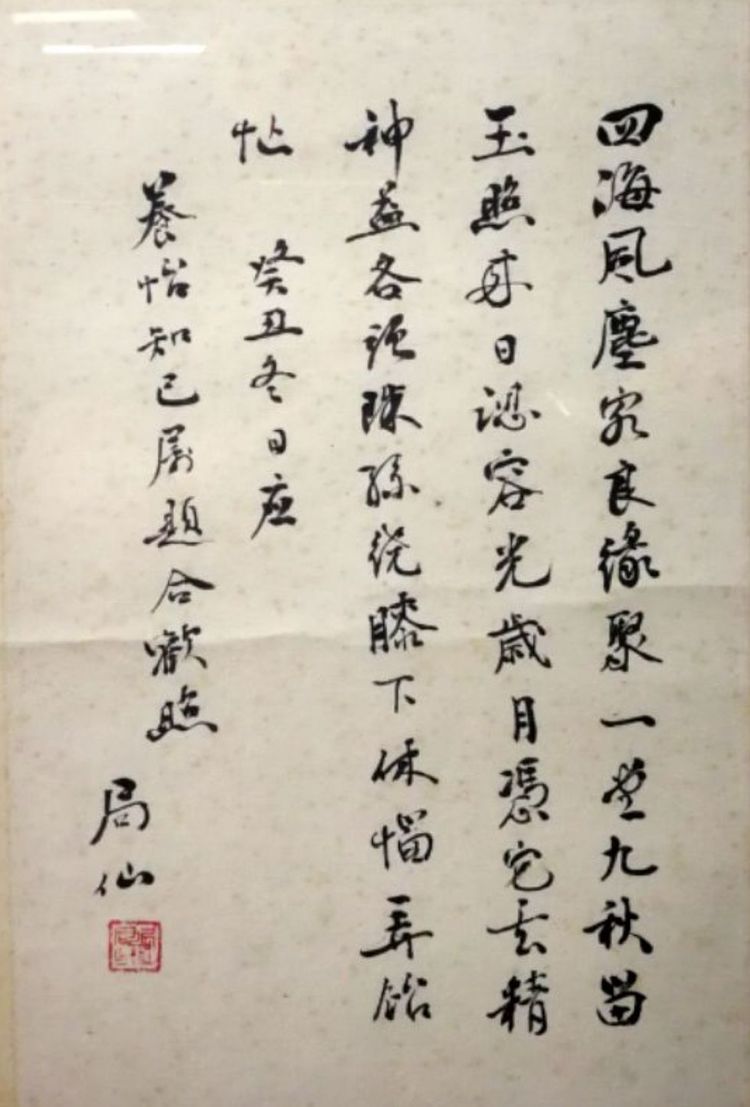 四海風塵客良緣聚一堂九秋留
玉照來日認容光歲月憑它去精
神益各強珠孫繞膝下休惱弄飴
忙 癸丑冬日應
養怡知己屬題合歡照
局仙